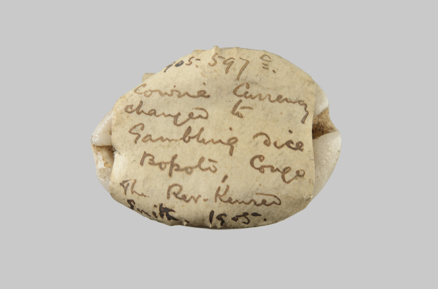 905.597 c.
Cowrie Currency
changed to
Gambling dice
Bopoto, Congo
The Rev. Kenred
Smith, 1905.